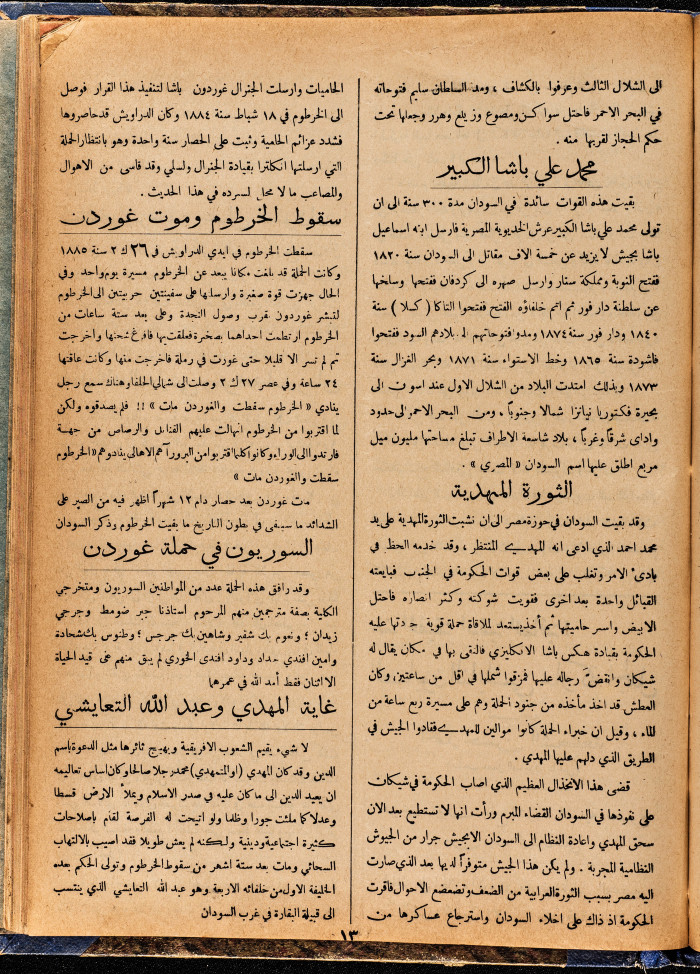 الى الشلال الثالث وعرفوا بالكشاف ، ومد السلطان سليم فتوحاته
في البحر الاحمر فاحتل سواكن ومصوع وزيلع وهرر وجعلها تحت
حكم الحجاز لقربها منه .
محمد علي باشا الكبير
بقيت هذه القوات سائدة في السودان مدة ٣٠٠ سنة الى ان
تولى محمد علي باشا الكبير عرش الخديوية المصرية فارسل ابنه اسماعيل
باشا بجيش لا يزيد عن خمسة الاف مقاتل الى السودان سنة ١٨٢٠
ففتح النوبة ومملكة سنار وارسل صهره الى كردفان ففتحها وسلخها
عن سلطنة دار فور ثم اتم خلفاؤه الفتح ففتحوا التاكا ( كسلا ) سنة
١٨٤٠ ودار فور سنة ١٨٧٤ ومدوا فتوحاتهم الى بلادهم السود ففتحوا
فاشودة سنة ١٨٦٥ وخط الاستواء سنة ١٨٧١ وبحر الغزال سنة
١٨٧٣ وبذلك امتدت البلاد من الشلال الاول عند اسوان الى
بحيرة فكتوريا نيانزا شمالا وجنوباً ، ومن البحر الاحمر الى حدود
واداى شرقاً وغرباً ، بلاد شاسعة الاطراف تبلغ مساحتها مليون ميل
مربع اطلق عليها اسم السودان « المصري » .
الثورة المهدية
وقد بقيت السودان في حوزة مصر الى ان نشبت الثورة المهدية على يد
محمد احمد الذي ادعى انه المهدي المنتظر ، وقد خدمه الحظ في
بادىء الامر وتغلب على بعض قوات الحكومة في الجنوب فبايعته
القبائل واحدة بعد اخرى فقويت شوكته وكثر انصاره فاحتل
الابيض واسر حاميتها ثم أخذ يستعد لملاقاة حملة قوية جردتها عليه
الحكومة بقيادة هكس باشا الانكليزي فالتقى بها في مكان يقال له
شيكان وانقضَّ رجاله عليها فمزقوا شملها في اقل من ساعتين، وكان
العطش قد اخذ مأخذه من جنود الحملة وهم على مسيرة ربع ساعة من
الماء ، وقيل ان خبراء الحملة كانوا موالين للمهدي فقادوا الجيش في
الطريق الذي دلهم عليها المهدي .
قضى هذا الانخذال العظيم الذي اصاب الحكومة في شيكان
على نفوذها في السودان القضاء المبرم ورأت انها لا تستطيع بعد الان
سحق المهدي واعادة النظام الى السودان الا بجيش جرار من الجيوش
النظامية المجربة . ولم يكن هذا الجيش متوفراً لديها بعد الذي صارت
اليه مصر بسبب الثورة العرابية من الضعف وتضعضع الاحوال فاقرت
الحكومة اذ ذاك على اخلاء السودان واسترجاع عساكرها من
الحاميات وارسلت الجنرال غوردون باشا لتنفيذ هذا القرار فوصل
الى الخرطوم في ١٨ شباط سنة ١٨٨٤ وكان الدراويش قد حاصروها
فشدد عزائم الحامية وثبت على الحصار سنة واحدة وهو بانتظار الحملة
التي ارسلتها انكلترا بقيادة الجنرال ولسلي وقد قاسى من الاهوال
والمصاعب ما لا محل لسرده في هذا الحديث .
سقوط الخرطوم وموت غوردن
سقطت الخرطوم في ايدي الدراويش في ٢٦ ك ٢ سنة ١٨٨٥
وكانت الحملة قد بلغت مكانا يبعد عن الخرطوم مسيرة يوم واحد وفي
الحال جهزت قوة صغيرة وارسلتها على سفينتين حربيتين الى الخرطوم
لتبشر غوردون بقرب وصول النجدة وعلى بعد ستة ساعات من
الخرطوم ارتطمت احداهما بصخرة فعلقت بها فافرغ شحنها واخرجت
ثم لم تسر الا قليلا حتى غورت في رملة فاخرجت منها وكانت عاقتها
٢٤ ساعة وفي عصر ٢٧ ك ٢ وصلت الى شمالي الحلفا وهناك سمع رجل
ينادي « الخرطوم سقطت والغوردن مات » !! فلم يصدقوه ولكن
لما اقتربوا من الخرطوم انهالت عليهم القنابل والرصاص من جهة
فارتدوا الى الوراء وكانوا كلما اقتربوا من البر ورآهم الاهالي ينادوهم « الخرطوم
سقطت والغوردن مات »
مات غوردن بعد حصار دام ١٢ شهراً اظهر فيه من الصبر على
الشدائد ما سيبقى في بطون التاريخ ما بقيت الخرطوم وذكر السودان
السوريون في حملة غوردن
وقد رافق هذه الحملة عدد من المواطنين السوريون ومتخرجي
الكلية بصفة مترجمين منهم المرحوم استاذنا جبر ضومط وجرجي
زيدان ؛ ونعوم بك شقير وشاهين بك جرجس ؛ وطنوس بك شحادة
وامين افندي حداد وداود افندي الخوري لم يبق منهم على قيد الحياة
الا اثنان فقط أمد الله في عمرهما
غاية المهدي وعبد الله التعايشي
لا شيء يقيم الشعوب الافريقية ويهيج ثائرها مثل الدعوة باسم
الدين وقد كان المهدي ( او المتمهدي ) محمد رجلا صالحا وكان اساس تعاليمه
ان يعيد الدين الى ما كان عليه في صدر الاسلام ويملأ الارض قسطا
وعدلا كما ملئت جورا وظلما ولو اتيحت له الفرصة لقام باصلاحات
كثيرة اجتماعية ودينية ولكنه لم يعش طويلا فقد اصيب بالالتهاب
السحائي ومات بعد ستة اشهر من سقوط الخرطوم وتولى الحكم بعده
الخليفة الاول من خلفائه الاربعة وهو عبد الله التعايشي الذي ينتسب
الى قبيلة البقارة في غرب السودان
١٣